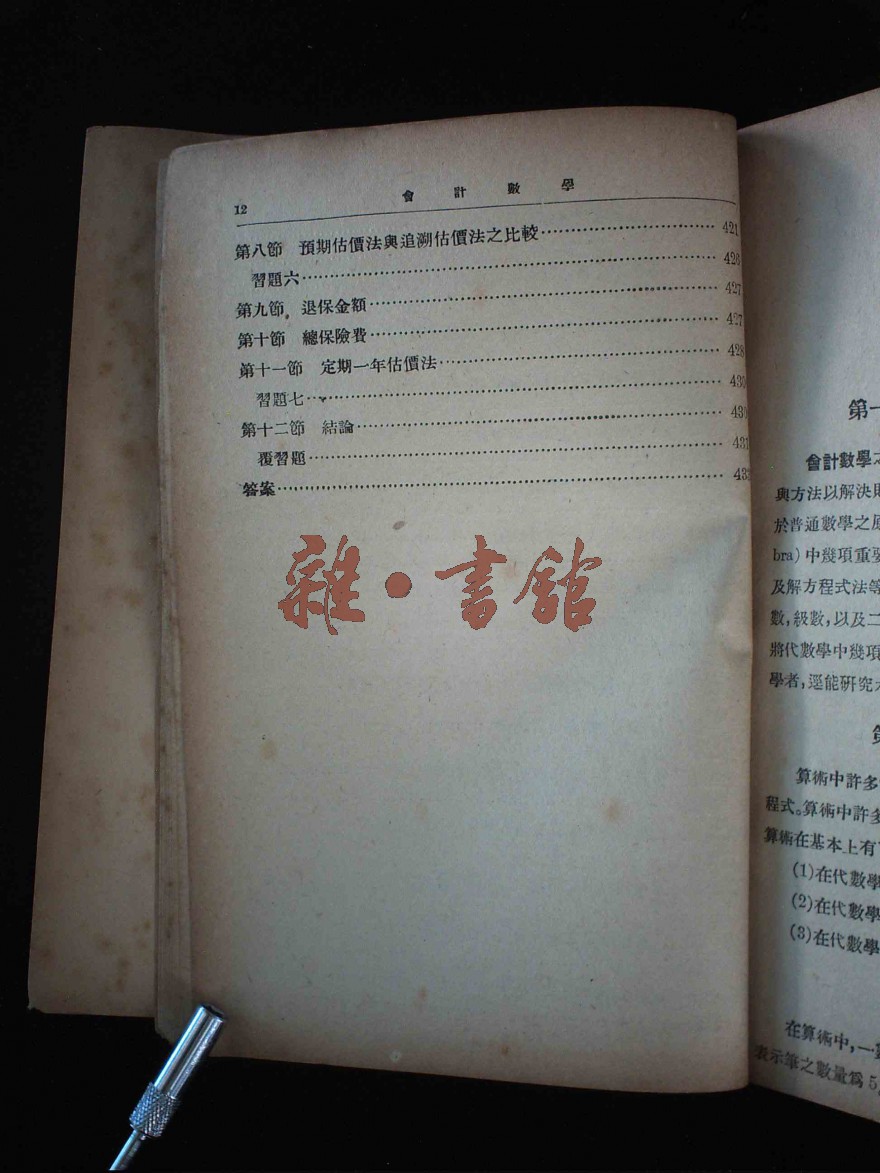 12
會計數學
第八節 預期估價法與追溯估價法之比較 421
習題六 426
第九節 退保金額 427
第十節 總保險費 427
第十一節 定期一年估價法 428
習題七 430
第十二節 結論 430
覆習題 431
答案 433
雜·書館
第一
會計數學之
與方法以解決
於普通數學之原
bra)中幾項重要
及解方程式法等
數,級數,以及二
將代數學中幾項
學者,逕能研究
算術中許多
程式。算術中許多
算術在基本上有
(1)在代數學
(2)在代數學
(3)在代數學
在算術中,一
表示筆之數量爲5